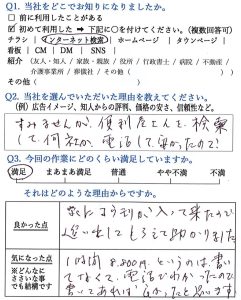 Q1. 当社をどこでお知りになりましたか。
□ 前に利用したことがある
☑ 初めて利用した ➡ 下記に○を付けてください。(複数回答可)
チラシ | インターネット検索 | ホームページ | タウンページ |
看板 | CM | DM | SNS |
紹介 (友人・知人 / 家族・親族 / 役所 / 行政書士 / 病院 / 不動産 /
介護事業所 / 葬儀社 / その他( )
その他( )
Q2. 当社を選んでいただいた理由を教えてください。
(例) 広告イメージ、知人からの評判、価格の安さ、信頼性など。
すみませんが、便利屋さんを検索
して、何社か、電話して安かったので!
Q3. 今回の作業にどのくらい満足していますか。
満足 まあまあ満足 普通 やや不満 不満
それはどのような理由からですか。
良かった点
家にハチが入って来たので
追い出してもらえて助かりました
気になった点
※どんなに
ささいな事
でも結構です
1時間 8,800円 というのは書い
てなくて、電話でわかったので
書いてあれば 良かったと思います